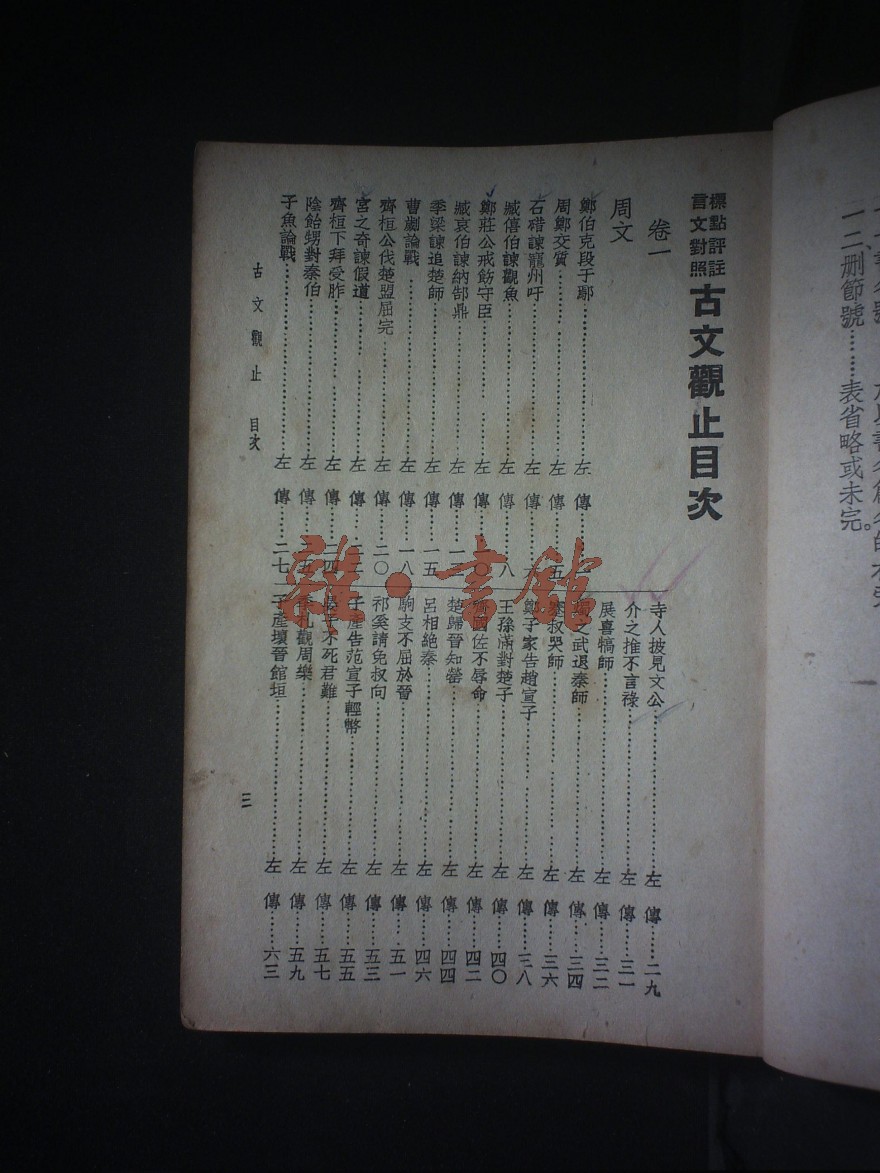 標點評註
言文對照
古文觀止目次
卷一
周文
鄭伯克段于鄢……左傳
周鄭交質……左傳……五
石碏諫寵州吁……左傳……六
臧僖伯諫觀魚……左傳……八
鄭莊公戒飭守臣……左傳……一〇
臧哀伯諫納郜鼎……左傳
季梁諫追楚師……左傳……一五
曹劌論戰……左傳……一八
齊桓公伐楚盟屈完……左傳……二〇
宮之奇諫假道……左傳……二二
齊桓下拜受胙……左傳……二四
陰飴甥對秦伯……左傳
子魚論戰……左傳……二七
寺人披見文公……左傳……二九
介之推不言祿……左傳……三一
展喜犒師……左傳……三二
燭之武退秦師……左傳……三四
蹇叔哭師……左傳……三六
鄭子家告趙宣子……左傳……三八
王孫滿對楚子……左傳……四〇
齊國佐不辱命……左傳……四二
楚歸晉知罃……左傳……四四
呂相絕秦……左傳……四六
駒支不屈於晉……左傳……五一
祁奚請免叔向……左傳……五三
子產告范宣子輕幣……左傳……五五
晏子不死君難……左傳……五七
季札觀周樂……左傳……五九
子產壞晉館垣……左傳……六三
古文觀止 目次
三
一二、刪節號……表省略或未完。
雜·書館